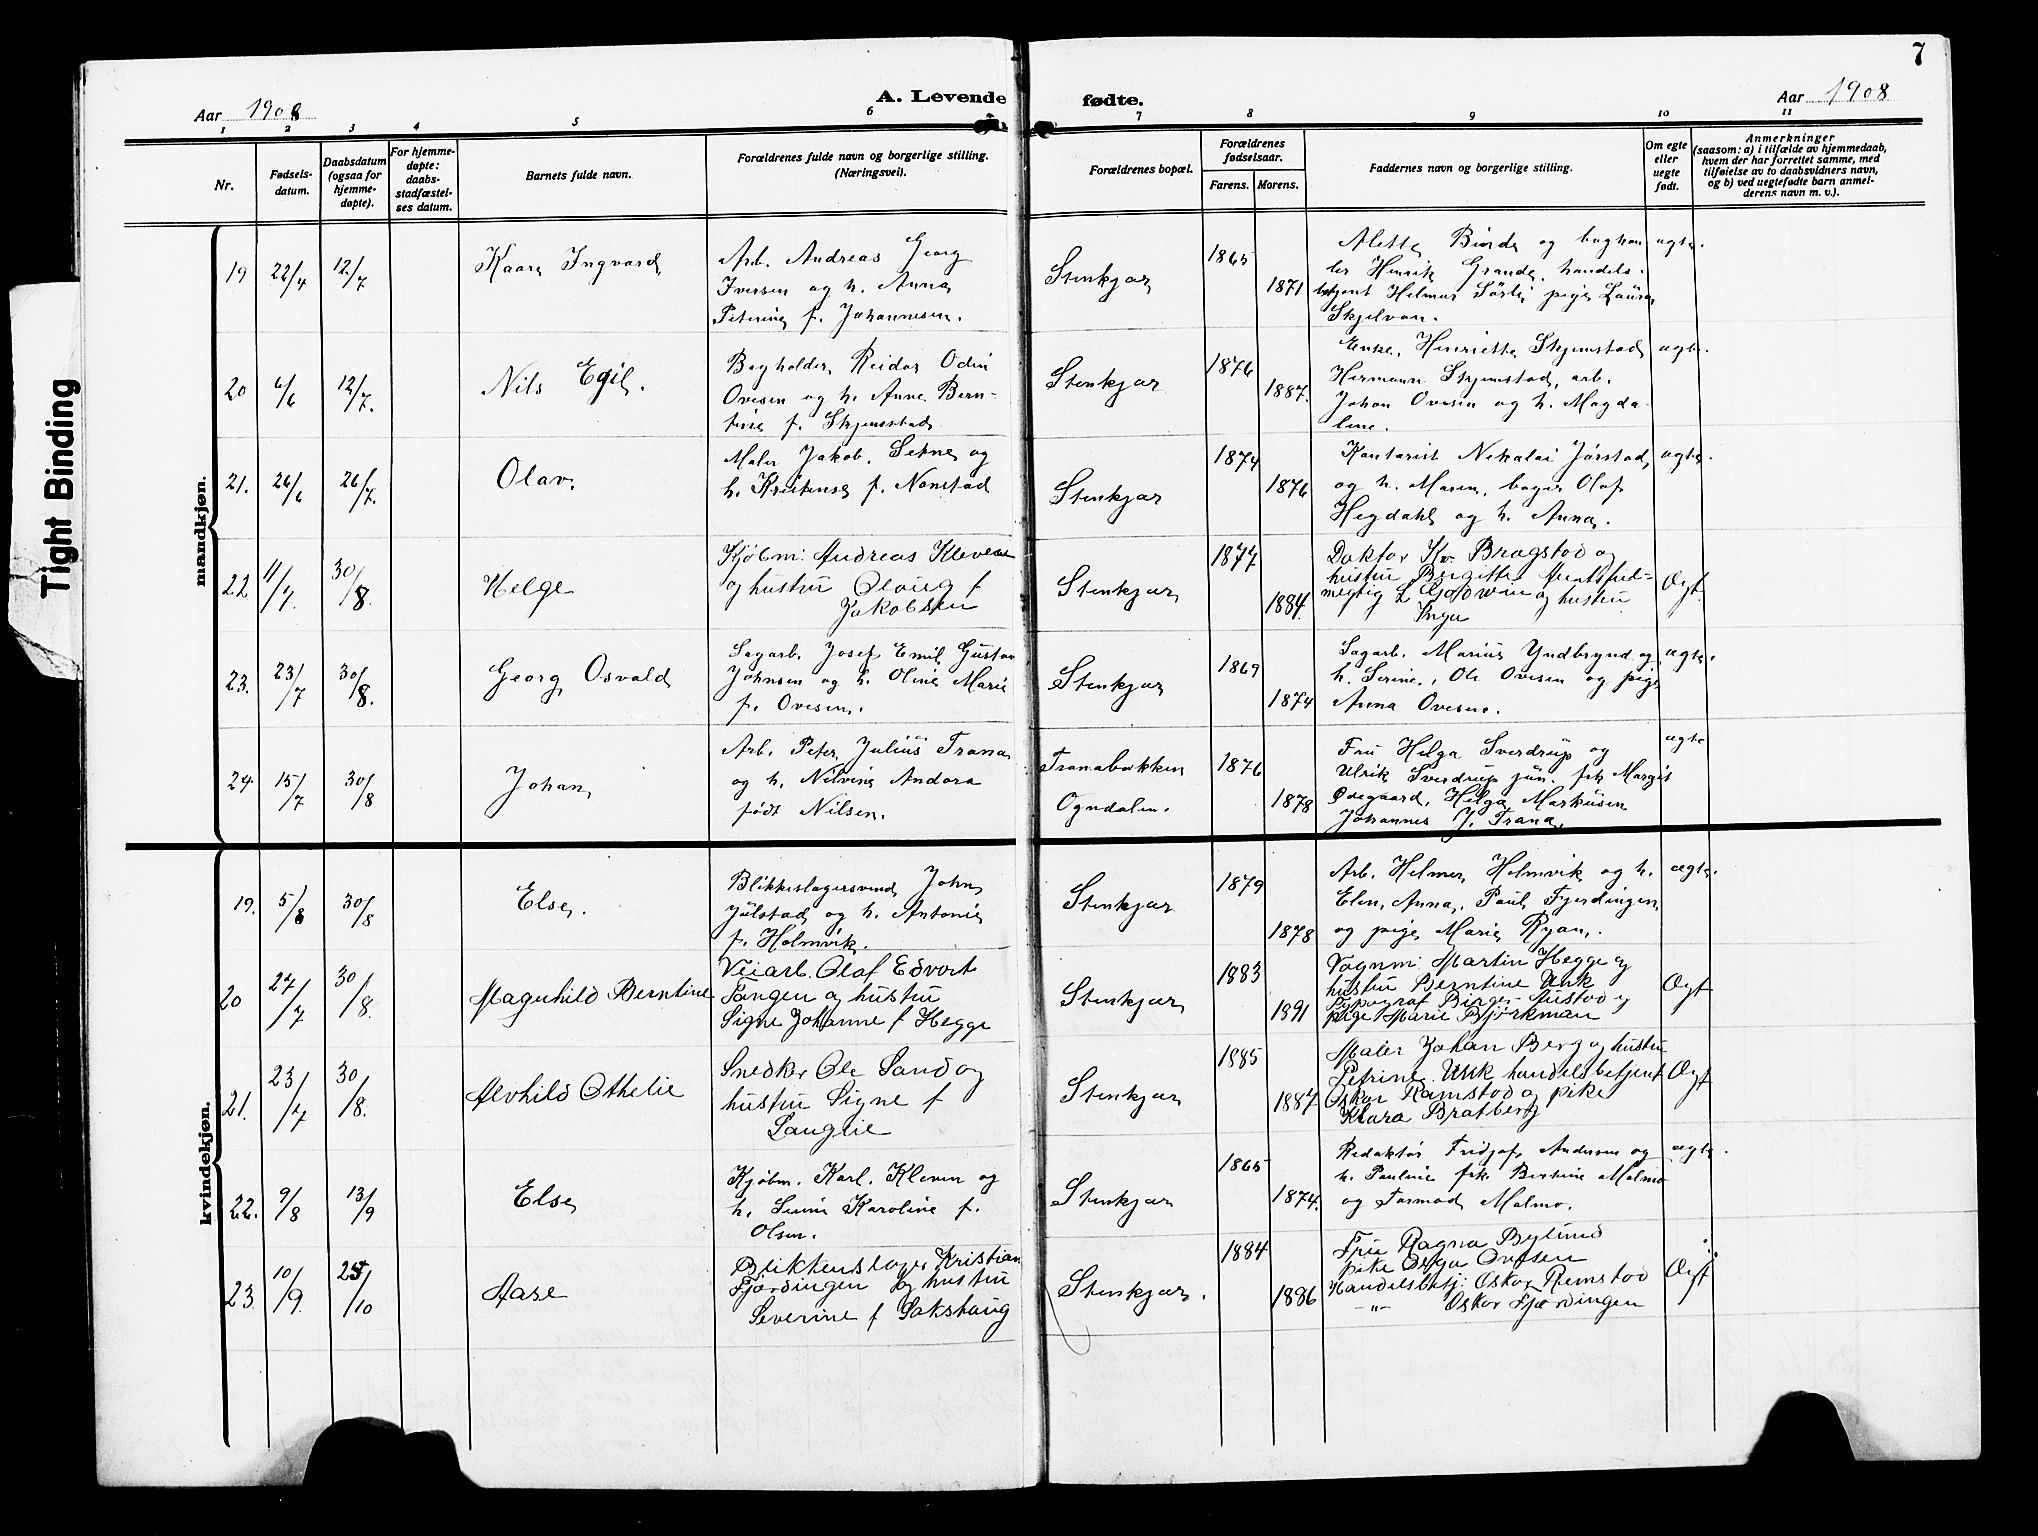 7
Aar 1908
A. Levende fødte.
Aar 1908
1 2 3 4 5 6 7 8 9 10 11
Nr.
Fødsels-
datum.
Daabsdatum
(ogsaa for
hjemme-
døpte).
For hjemme-
døpte:
daabs-
stadfæstel-
ses datum.
Barnets fulde navn.
Forældrenes fulde navn og borgerlige stilling.
(Næringsvei).
Forældrenes bopæl.
Forældrenes
fødselsaar.
Farens. Morens.
Faddernes navn og borgerlige stilling.
Om egte
eller
uegte
født.
Anmerkninger
(saasom: a) i tilfælde av hjemmedaab,
hvem der har forrettet samme, med
tilføielse av to daabsvidners navn,
og b) ved uegtefødte barn anmel-
derens navn m. v.).
Tight Binding
mandkjøn.
19 22/4 12/7
Kaare Ingvard
Arb. Andreas Georg
Iversen og h. Anna
Petrine f. Johannesen.
Stenkjær
1865
1871
Alette Binde og boghan
ler Henrik Grande, handels-
betjent Helmer Sørli pige Laura
Skjelvan.
ægte.
20 6/6 12/7.
Nils Egil.
Bogholder Reidar Odin
Ovesen og h. Anne Bern-
tine f. Skjemstad
Stenkjær
1876
1887.
Enke Henriette Skjemstad
Hermann Skjemstad, arb.
Johan Ovesen og h. Magda-
lene.
ægte.
21. 26/6 26/7.
Olav.
Maler Jakob Setne og
h. Kristense f. Nonstad
Stenkjær
1874
1876
Kontorist Nikolai Jørstad
og h. Maren, bager Olaf
Hegdahl og h. Anna.
ægte.
22. 11/7. 30/8.
Helge
Kjøbm: Andreas Kleven
og hustru Olaug f
Jakobsen
Stenkjær
1877
1884.
Doktor Kr. Bragstad og
hustru Bergitte Amtsfuld=
megtig og hustru
Inga
Ægt.
23. 23/7 30/8.
Georg Osvald
Sagarb. Josef Emil Gustav
Johnsen og h. Oline Marie
f. Ovesen.
Stenkjær
1869
1874
Sagarb. Marius Yndbrynd og
h. Serine, Ole Ovesen og pige
Anna Ovesen.
ægte.
24 15/7 30/8
Johan
Arb. Peter Julius Trana
og h. Nilvine Andora
født Nilsen.
Tranabakken
Ogndalen.
1876
1878
Fru Helga Sverdrup og
Ulrik Sverdrup jun. frk Margit
Ødegaard, Helga Markusen
Johannes J. Trana.
ægte
kvindekjøn.
19. 5/8 30/8
Else.
Blikkeslagersvend John
Julstad og h. Antonie
f. Holmvik.
Stenkjær
1879
1878
Arb. Helmer Holmvik og h.
Elen Anna, Paul Fjerdingen
og pige Marie Ryan.
ægte.
20 27/7 30/8.
Magnhild Berntine
Veiarb. Olaf Edvart
Tangen og hustru
Signe Johanne f Hegge
Stenkjær
1883
1891
Vognm: Martin Hegge og
hustru Berntine Unk
Typograf Birger Austad og
pige Marie Bjørkman
Ægt
21. 23/7 30/8.
Alvhild Othelie
Snedker Ole Sand og
hustru Signe f
Langlie
Stenkjær
1885
1887
Maler Johan Berg og hustru
Petrine Unk handelsbetjent
Oskar Ramstad og pike
Klara Bratberg
Ægt
22. 9/8 13/9
Else
Kjøbm. Karl Kleven og
h. Karoline f.
Olsen.
Stenkjær
1865
1874.
Redaktør Fridjof Andersen og
h. Pauline frk. Berntine Malmo
og Tormod Malmo.
ægte.
23. 10/9. 25/10
Aase
Blikkenslager Kristian
Fjærdingen og hustru
Severine f Sakshaug
Stenkjær.
1884
1886
Fru Ragna Bylund
pike Olga Ovesen
Handelsbetj: Oskar Remstad
-"- Oskar Fjærdingen
Ægt